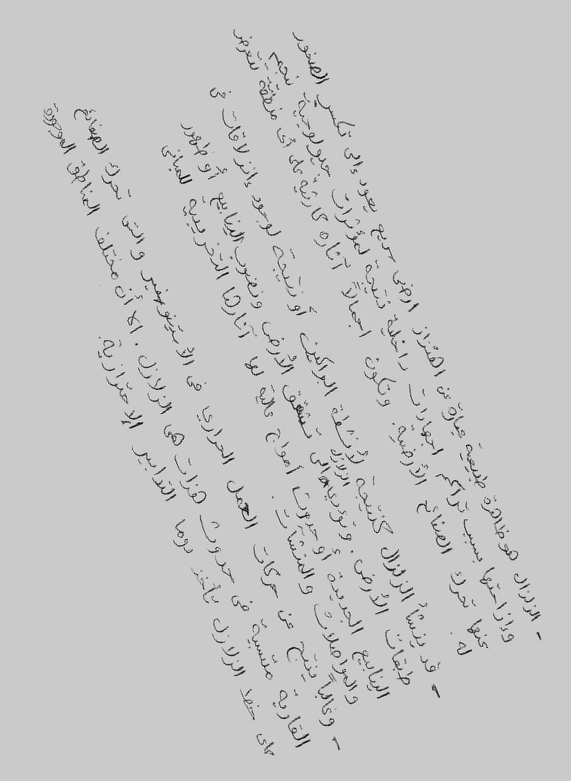 - الزلزال هو ظاهرة طبيعية عبارة عن اهتزاز ارضي سريع يعود إلى تكسر الصخور
وإزاحتها بسبب تراكم اجهادات داخلية نتيجة لمؤثرات جيولوجية ينجم
عنها تحرك الصفائح الأرضية. وتكون اجمالاً آثاره كارثية على أي منطقة تتعرض
له.
- قد ينشأ الزلزال كنتيجة لأنشطة البراكين أو نتيجة لوجود انزلاقات في
طبقات الأرض. وتؤدي الزلازل إلى تشقق الأرض ونضوب الينابيع أو ظهور
الينابيع الجديدة أو حدوث أمواج عالية لها آثارها التخريبية للمباني
والمواصلات والمنشآت.
- وغالباً ينتج عن حركات الحمل الحراري في الأستينوسفير والتي تحرك الصفائح
القارية متسببة في حدوث هزات هي الزلازل. الا أن مختلف المناطق الموجودة
على خط الزلازل تأخذ دوما التدابير الاحترازية.